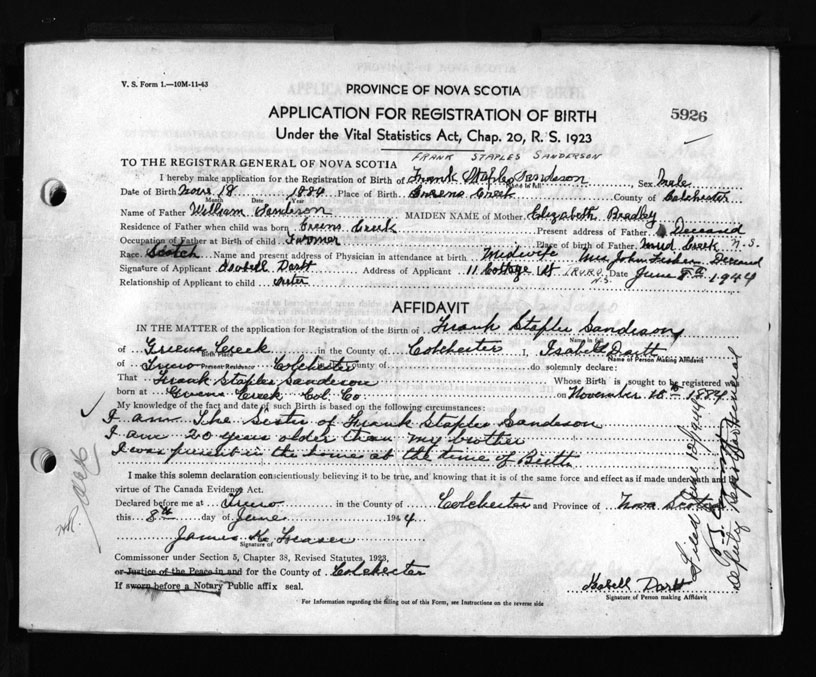 V. S. Form 1.—10M-11-43
PROVINCE OF NOVA SCOTIA
5926
APPLICATION FOR REGISTRATION OF BIRTH
Under the Vital Statistics Act, Chap. 20, R. S. 1923
FRANK STAPLES SANDERSON
TO THE REGISTRAR GENERAL OF NOVA SCOTIA
I hereby make application for the Registration of Birth of Frank Staples Sanderson Sex Male
Name in full
Date of Birth Nov. 18 1884 Place of Birth Greens Creek County of Colchester
Month Date Year
Name of Father William Sanderson MAIDEN NAME of Mother Elizabeth Bradley
Residence of Father when child was born Greens Creek Present address of Father Deceased
Occupation of Father at Birth of child Farmer Place of birth of Father Mud Creek N.S.
Race Scotch Name and present address of Physician in attendance at birth Midwife Mrs John Fisher Deceased
Signature of Applicant Isabell Dartt Address of Applicant 11 Cottage St TRURO N.S. Date June 8th 1944
Relationship of Applicant to child Sister
AFFIDAVIT
IN THE MATTER of the application for Registration of the Birth of Frank Staples Sanderson
Name in full
of Greens Creek in the County of Colchester I, Isabell Dartt
Birth Place Name of Person making Affidavit
of Truro Colchester County of do solemnly declare:
Present Residence
That Frank Staples Sanderson Whose Birth is sought to be registered was
born at Greens Creek Col. Co. on November 18th 1884
My knowledge of the fact and date of such Birth is based on the following circumstances:
I am The Sister of Frank Staples Sanderson
I am 20 years older than my brother
I was present in the home at the time of Birth
I make this solemn declaration conscientiously believing it to be true, and knowing that it is of the same force and effect as if made under oath and by
virtue of The Canada Evidence Act.
Declared before me at Truro in the County of Colchester and Province of Nova Scotia
this 8th day of June 1944
James K. Fraser
Signature of
Commissioner under Section 5, Chapter 38, Revised Statutes, 1923,
or Justice of the Peace in and for the County of Colchester
If sworn before a Notary Public affix seal.
Isabell Dartt
Signature of Person making Affidavit
For Information regarding the filling out of this Form, see Instructions on the reverse side
Filed June 10/1944
Deputy Registrar General